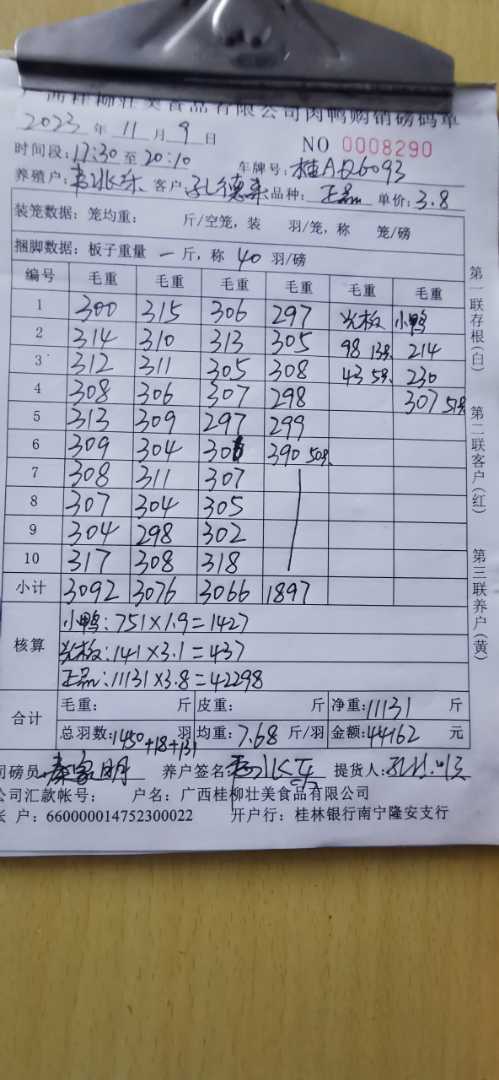 广西桂柳壮美食品有限公司肉鸭购销磅码单
2023 年 11 月 9 日 NO 0008290
时间段: 17:30 至 20:10 车牌号: 桂AD6093
养殖户: 客户: 孔德荣 品种: 正品 单价: 3.8
装笼数据: 笼均重: 斤/空笼, 装 羽/笼, 称 笼/磅
捆脚数据: 板子重量 一 斤, 称 40 羽/磅
编号 毛重 毛重 毛重 毛重 毛重 毛重
1 300 315 306 297 光板 小鸭
2 314 310 313 305 98 13羽 214
3 312 311 305 308 43 5羽 230
4 308 306 307 298 307 51羽
5 313 309 297 299
6 309 304 306 390 50羽
7 308 311 307
8 307 304 305
9 304 298 302
10 317 308 318
小计 3092 3076 3066 1897
核算
小鸭: 751×1.9=1427
光板: 141×3.1=437
正品: 11131×3.8=42298
合计
毛重: 斤 皮重: 斤 净重: 11131 斤
总羽数: 1450+18+131 羽 均重: 7.68 斤/羽 金额: 44162 元
司磅员 秦家明 养户签名 提货人:
公司汇款帐号: 户名: 广西桂柳壮美食品有限公司
户: 660000014752300022 开户行: 桂林银行南宁隆安支行
第一联存根(白) 第二联客户(红) 第三联养户(黄)